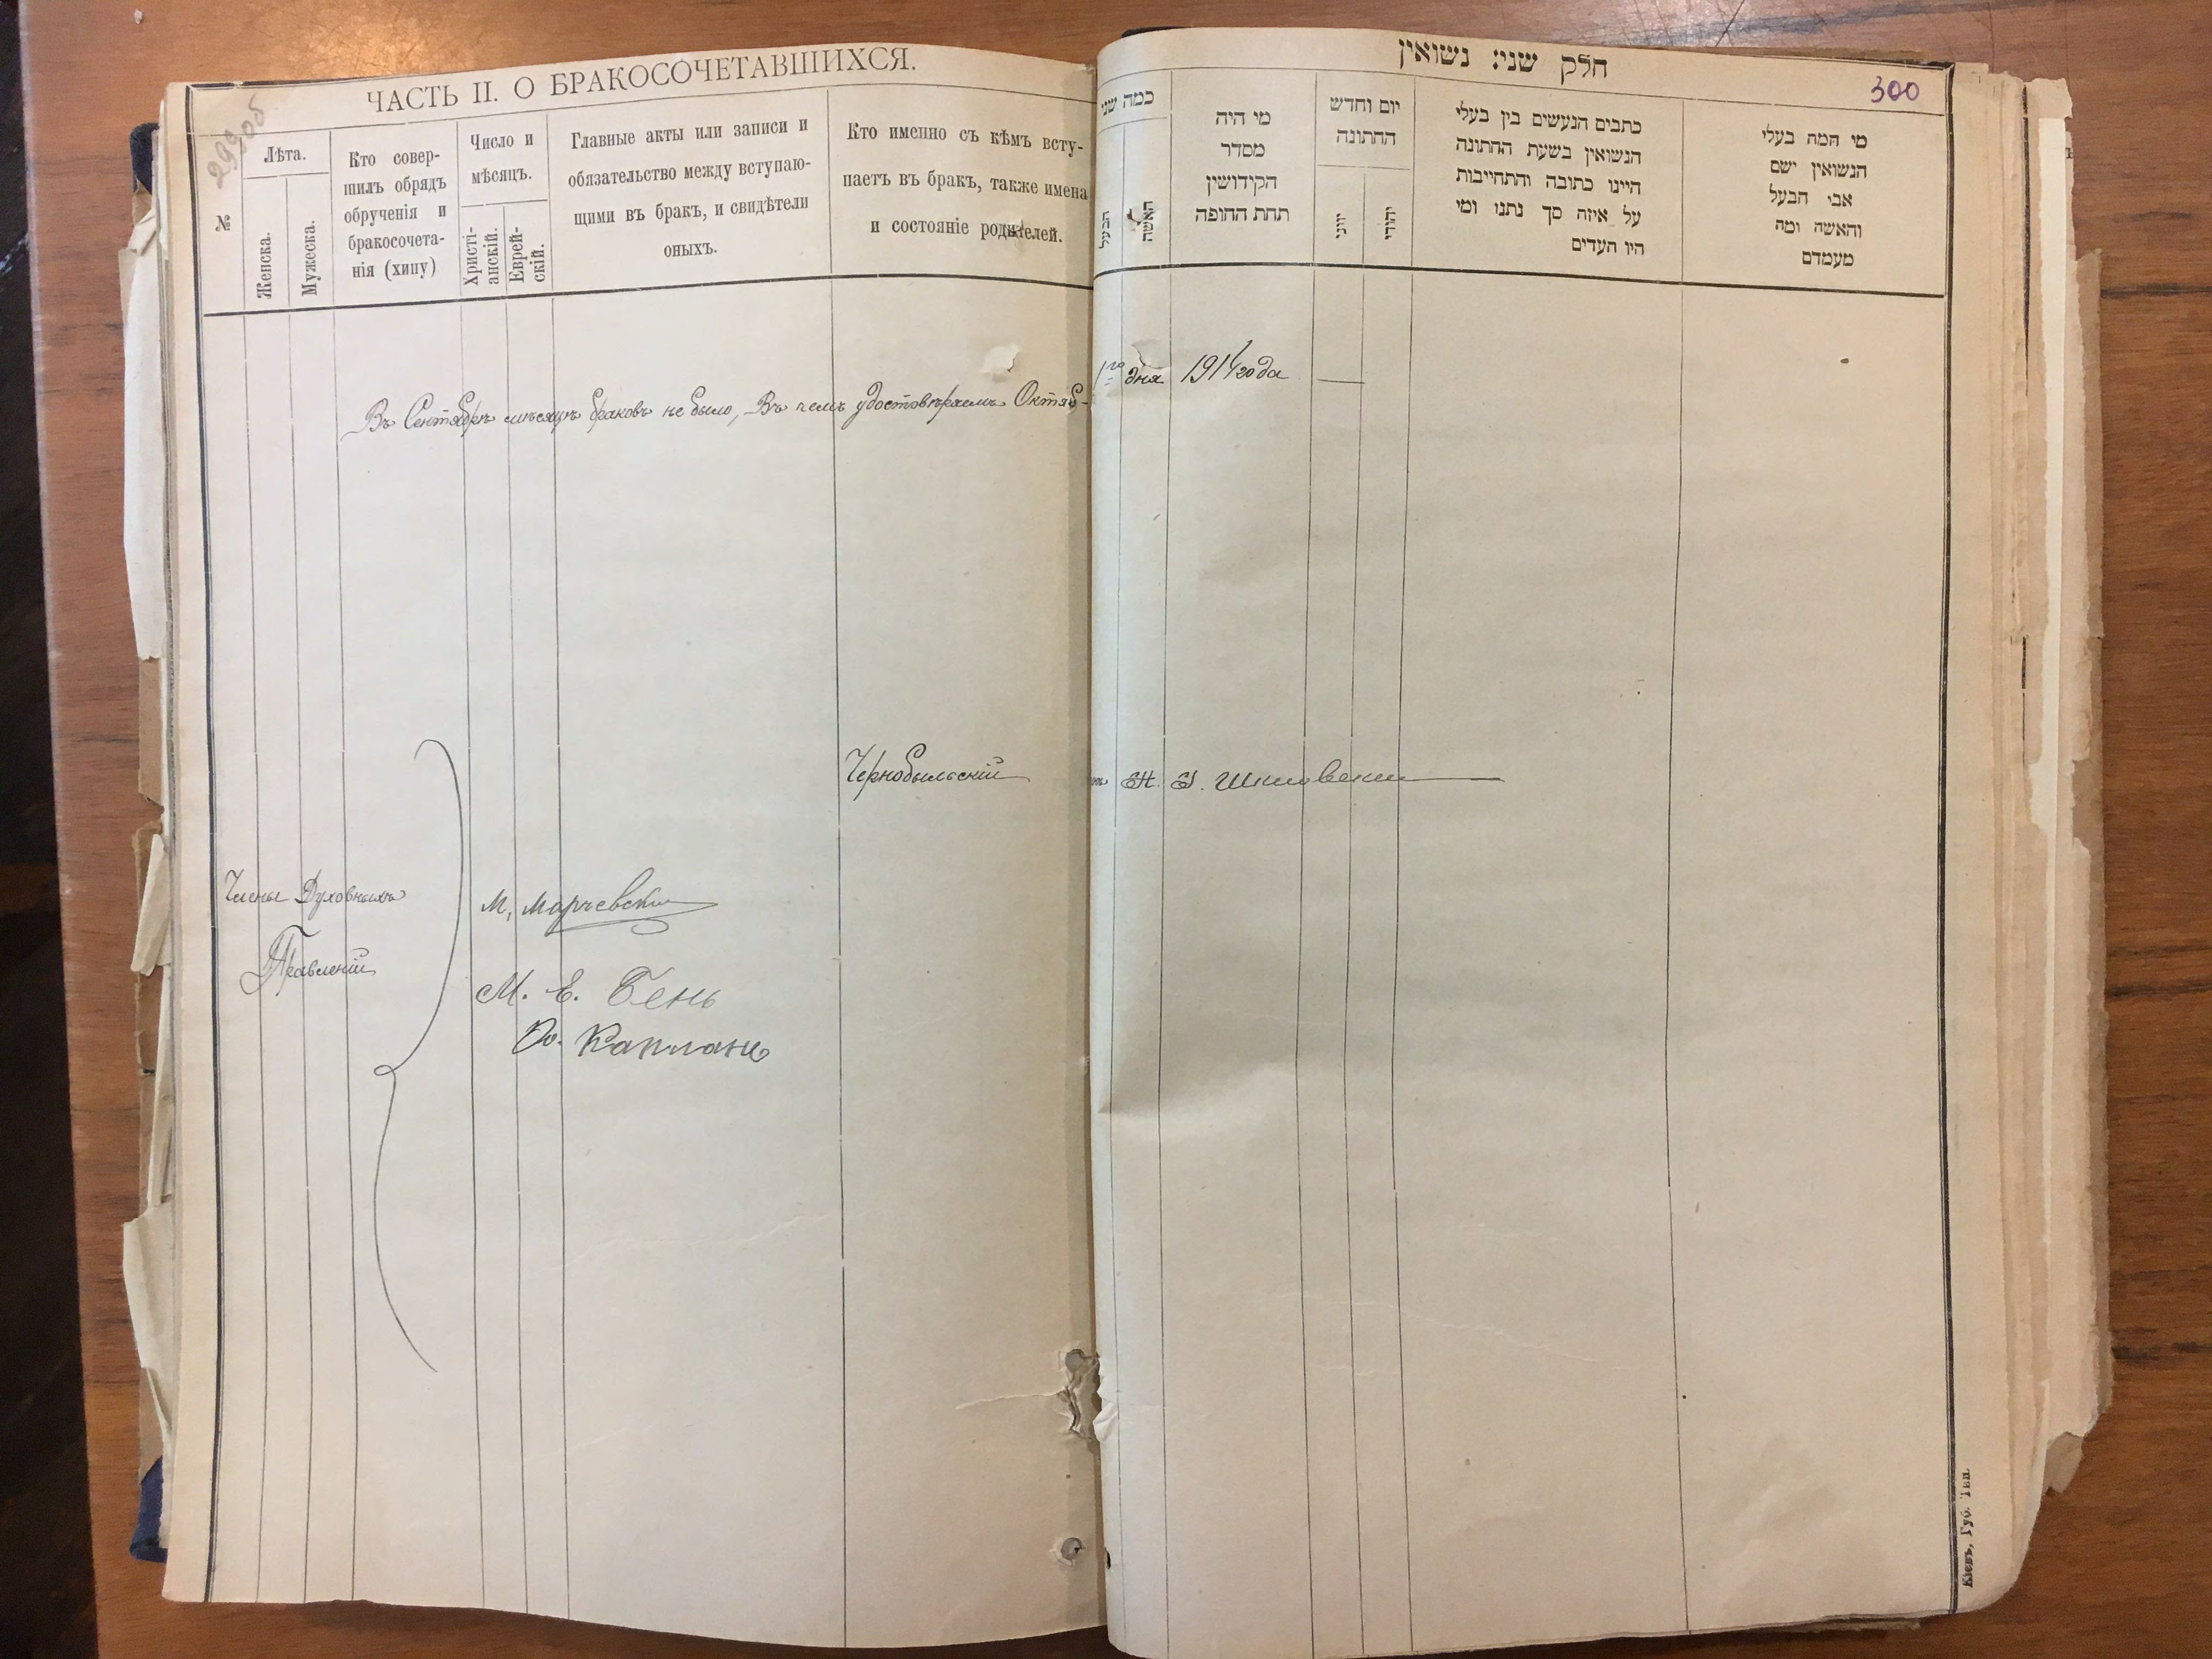 ЧАСТЬ II. О БРАКОСОЧЕТАВШИХСЯ.
299об
№
Лѣта.
Женска.
Мужеска.
Кто совер-
шилъ обрядъ
обрученія и
бракосочета-
нія (хипу)
Число и
мѣсяцъ.
Христі-
анскій.
Еврей-
скій.
Главные акты или записи и
обязательство между вступаю-
щими въ бракъ, и свидѣтели
оныхъ.
Кто именно съ кѣмъ всту-
паетъ въ бракъ, также имена
и состояніе родителей.
Въ Сентябрѣ мѣсяцѣ браковъ не было, Въ чемъ удостовѣряемъ Октяб-
Чернобыльскій
Члены Духовныхъ
Правленій
М. Марчевскій
М. Е. Бень
Каплань
חלק שני: נשואין
300
כמה שני
הבעל
האשה
מי היה
מסדר
הקידושין
תחת החופה
יום וחדש
החתונה
יווני
יהודי
כתבים הנעשים בין בעלי
הנשואין בשעת החתונה
היינו כתובה והתחייבות
על איזה סך נתנו ומי
היו העדים
מי המה בעלי
הנשואין ושם
אבי הבעל
והאשה ומה
מעמדם
1го дня 1911 года
Шкловскій
Кіевъ, Губ. Тип.